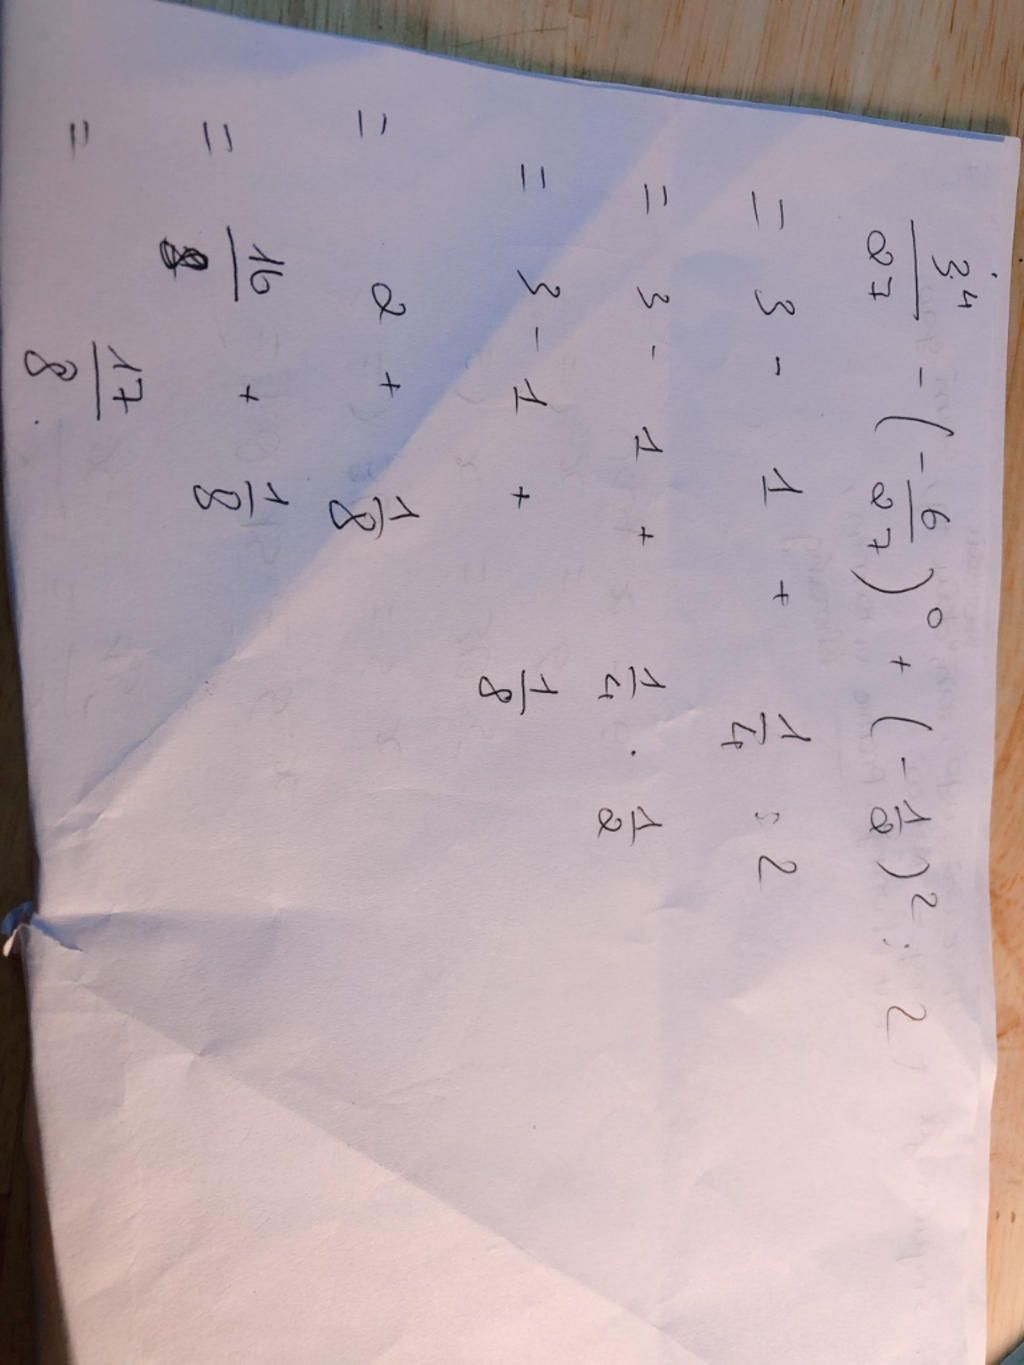 3⁴/27 - (-6/27)⁰ + (-1/2)² : 2
= 3 - 1 + 1/4 : 2
= 3 - 1 + 1/4 . 1/2
= 3 - 1 + 1/8
= 2 + 1/8
= 16/8 + 1/8
= 17/8.